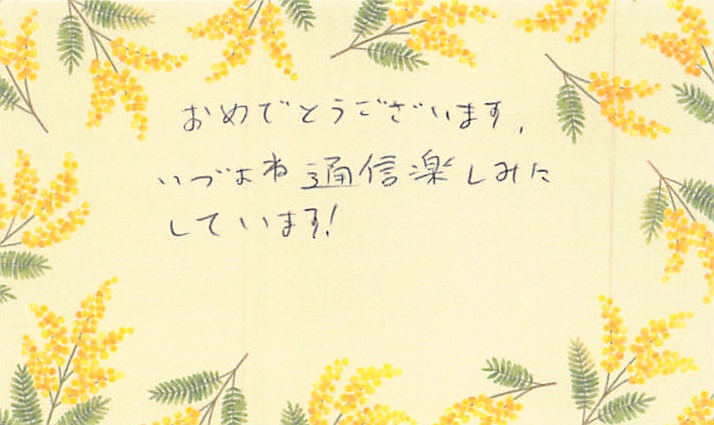 おめでとうございます,
いづよね通信楽しみに
しています!